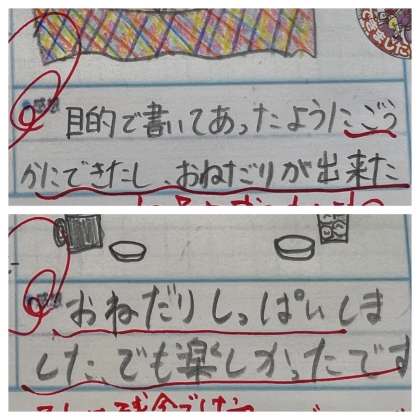 できました
目的で書いてあったようにごう
かにできたし、おねだりが出来た
おねだりしっぱいしま
した、でも楽しかったです